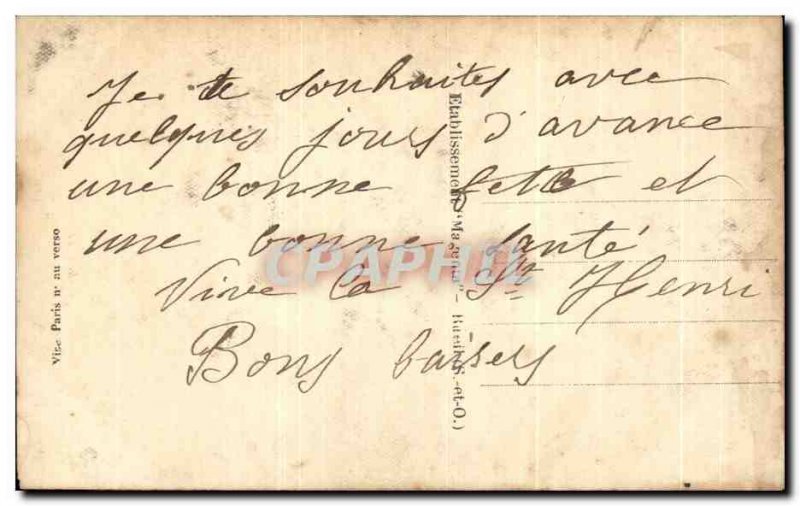 Je te souhaites avec
quelques jours d'avance
une bonne fette et
une bonne santé
Vive la St Henri
Bons baisers
Etablissements "Ma
S.-et-O.)
Vise Paris n° au verso
CPAPHIL